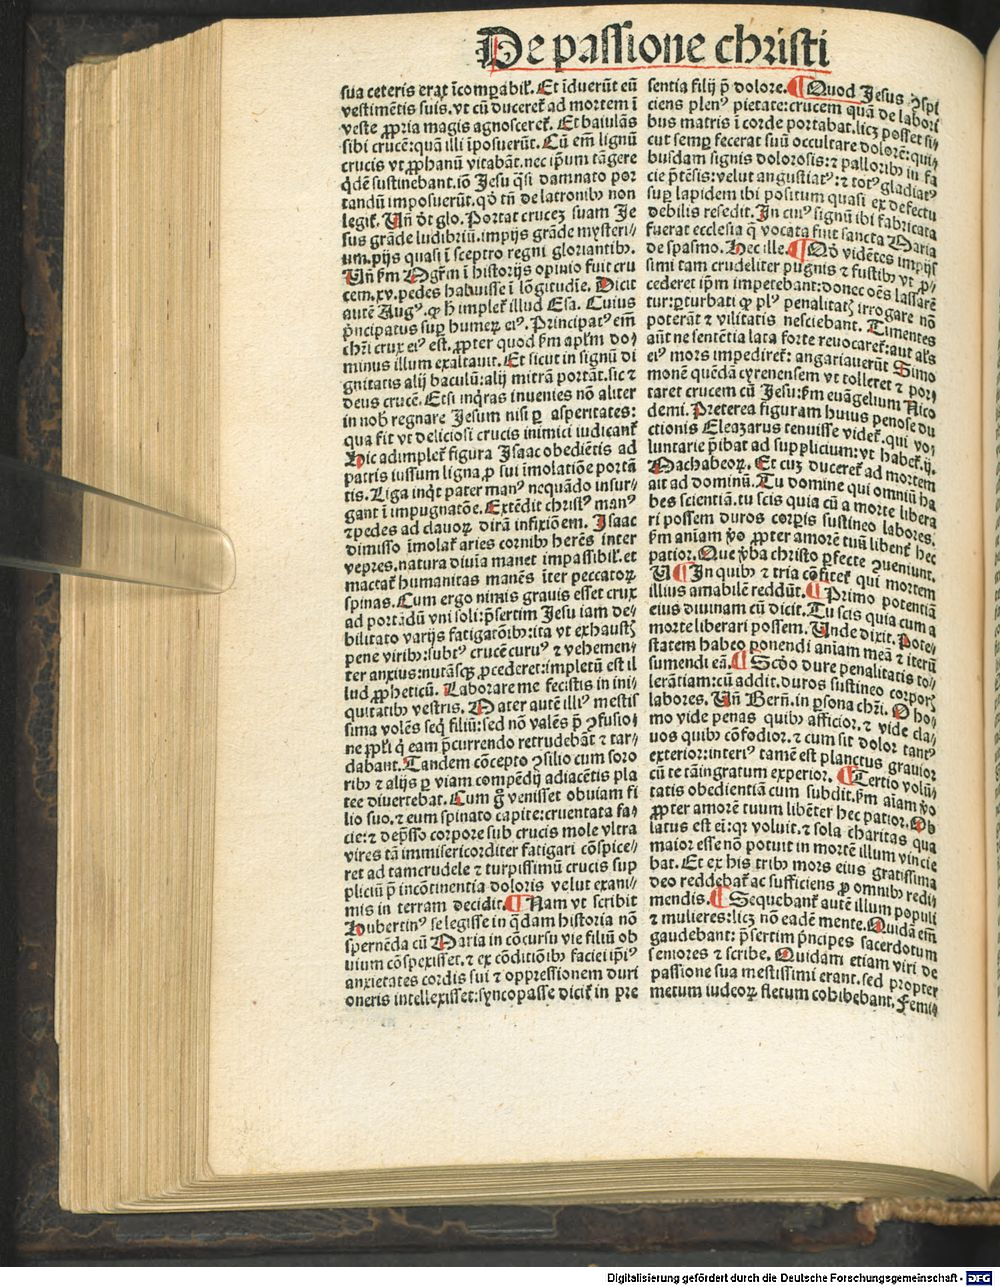 De passione christi
sua ceteris erāt īcomꝑabil'. Et īduerūt eū
vestimētis suis. vt cū duceret᷑ ad mortem ī
veste ꝓpria magis agnosceret᷑. Et baiulās
sibi crucē: quā illi īposuerūt. Cū em̄ lignū
crucis vt ꝓphanū vitabāt. nec ip̄um tāgere
q̇dē sustinebant. iō Jesu q̄si damnato por
tandū imposuerūt. qḋ tn̄ de latronibꝰ non
legit᷑. Un̄ ḋt glo. Portat crucez suam Je
sus grāde ludibriū. impijs grāde mysteri⸗
um. pijs quasi ī sceptro regni gloriantibꝫ.
Un̄ ẜm Mgr̄m ī historijs opinio fuit cru
cem .xv. pedes habuisse ī lōgitudīe. Dicit
autē Augꝰ. ꝙ h̄ implet᷑ illud Esa. Cuius
pͥncipatus suꝑ humeꝝ eiꝰ. Principatꝰ em̄
chr̄i crux eiꝰ est. ꝓpter quod ẜm apl̄m do⸗
minus illum exaltauit. Et sicut in signū di
gnitatis alij baculū: alij mitrā portāt. sic ⁊
deus crucē. Etsi inq̇ras inuenies nō aliter
in nob̄ regnare Jesum nisi ꝑ asperitates:
qua fit vt deliciosi crucis inimici iudicant᷑
Hic adimplet᷑ figura Isaac obediētis ad
patris iussum ligna ꝓ sui īmolatiōe portā
tis. Liga inq̇t pater manꝰ nequādo insur⸗
gant ī impugnatōe. Extēdit christꝰ manꝰ
⁊ pedes ad clauoꝝ dirā infixiōem. Isaac
dimisso īmolat᷑ aries cornibꝫ herēs inter
vepres. natura diuīa manet impassibil'. et
mactat᷑ humanitas manēs īter peccatoꝝ
spinas. Cum ergo nimis grauis esset crux
ad portādū vni soli: p̄sertim Jesu iam de⸗
bilitato varijs fatigatōibꝫ: ita vt exhaustꝭ
pene viribꝫ: subtꝰ crucē curuꝰ ⁊ vehemen⸗
ter anxius: nutāsqꝫ ꝓcederet: impletū est il
lud ꝓpheticū. Laborare me fecistis in ini⸗
quitatibꝫ vestris. Mater autē illiꝰ mestis
sima volēs seq̇ filiū: sed nō valēs p̄ ꝯfusio⸗
ne ppl̄i q̇ eam p̄currendo retrudebāt ⁊ tar⸗
dabant. Tandem cōcepto ꝯsilio cum soro
ribꝫ ⁊ alijs ꝑ viam compēdij adiacētis pla
tee diuertebat. Cum gͦ venisset obuiam fi
lio suo. ⁊ eum spinato capite: cruentata fa⸗
cie: ⁊ dep̄sso corpore sub crucis mole vltra
vires tā immisericorditer fatigari cōspice⸗
ret ad tamcrudele ⁊ turpissimū crucis sup
pliciū p̄ incōtinentia doloris velut exani⸗
mis in terram decidit. ¶ Nam vt scribit
Hubertinꝰ se legisse in q̇dam historia nō
spernēda cū Maria in cōcursu vie filiū ob
uium cōspexisset. ⁊ ex cōditiōibꝫ faciei ip̄iꝰ
anxietates cordis sui ⁊ oppressionem duri
oneris intellexisset: syncopasse dicit᷑ in pre
sentia filij p̄ dolore. ¶ Quod Jesus ꝯspi
ciens plenꝰ pietate: crucem quā de labori
bus matris ī corde portabat. licꝫ posset si⸗
cut semꝑ fecerat suū occultare dolorē: qui⸗
busdam signis dolorosis: ⁊ palloribꝫ in fa
cie p̄tēsis: velut angustiatꝰ: ⁊ totꝰ gladiatꝰ
suꝑ lapidem ibi positum quasi ex defectu
debilis resedit. In cuiꝰ signū ibi fabricata
fuerat ecclesia q̄ vocata fuit sancta Maria
de spasmo. Hec ille. ¶ Qḋ vidētes impijs
simi tam crudeliter pugnis ⁊ fustibꝫ vt ꝓ⸗
cederet ip̄m impetebant: donec oēs lassarē
tur: ꝑturbati ꝙ plꝰ penalitatꝭ irrogare nō
poterāt ⁊ vilitatis nesciebant. Timentes
aūt ne sentētia lata forte reuocaret᷑: aut al's
eiꝰ mors impediret᷑: angariauerūt Simo
monē quēdā cyrenensem vt tolleret ⁊ por⸗
taret crucem cū Jesu: ẜm euāgelium Nico
demi. Preterea figuram huius penose du
ctionis Eleazarus tenuisse videt᷑. qui vo⸗
luntarie p̄ibat ad supplicium: vt habet᷑ .ij.
Machabeoꝝ. Et cuꝫ duceret᷑ ad mortem
ait ad dominū. Tu domine qui omniū ha
bes scientiā. tu scis quia cū a morte libera
ri possem duros corꝑis sustineo labores.
ẜm aniam ꝟo ꝓpter amorē tuū libent᷑ hec
patior. Que ꝟba christo ꝑfecte ꝯueniunt.
U ¶ In quibꝫ ⁊ tria cōfitet᷑ qui mortem
illius amabilē reddūt. ¶ Primo potentiā
eius diuinam cū dicit. Tu scis quia cum a
morte liberari possem. Unde dixit. Pote⸗
statem habeo ponendi aniam meā ⁊ iterū
sumendi eā. ¶ Scḋo dure penalitatis to⸗
lerātiam: cū addit. duros sustineo corporꝭ
labores. Un̄ Bern̄. in ꝑsona chr̄i. O ho⸗
mo vide penas quibꝫ afficior. ⁊ vide cla⸗
uos quibꝫ cōfodior. ⁊ cum sit dolor tantꝰ
exterior: interiꝰ tamē est planctus grauior
cū te tā ingratum experior. ¶ Tertio volū⸗
tatis obedientiā cum subdit. ẜm aiam ꝟo
ꝓpter amorē tuum libēter hec patior. Ob
latus est ei: qꝛ voluit. ⁊ sola charitas qua
maior esse nō potuit in mortē illum vincie
bat. Et ex his tribꝫ mors eius gratissima
deo reddebat᷑ ac sufficiens ꝓ omnibꝫ redi⸗
mendis. ¶ Sequebant᷑ autē illum populi
⁊ mulieres: licꝫ nō eadē mente. Quidā em̄
gaudebant: p̄sertim pͥncipes sacerdotum
seniores ⁊ scribe. Quidam etiam viri de
passione sua mestissimi erant. sed propter
metum iudeoꝝ fletum cohibebant. Femi⸗
Digitalisierung gefördert durch die Deutsche Forschungsgemeinschaft - DFG